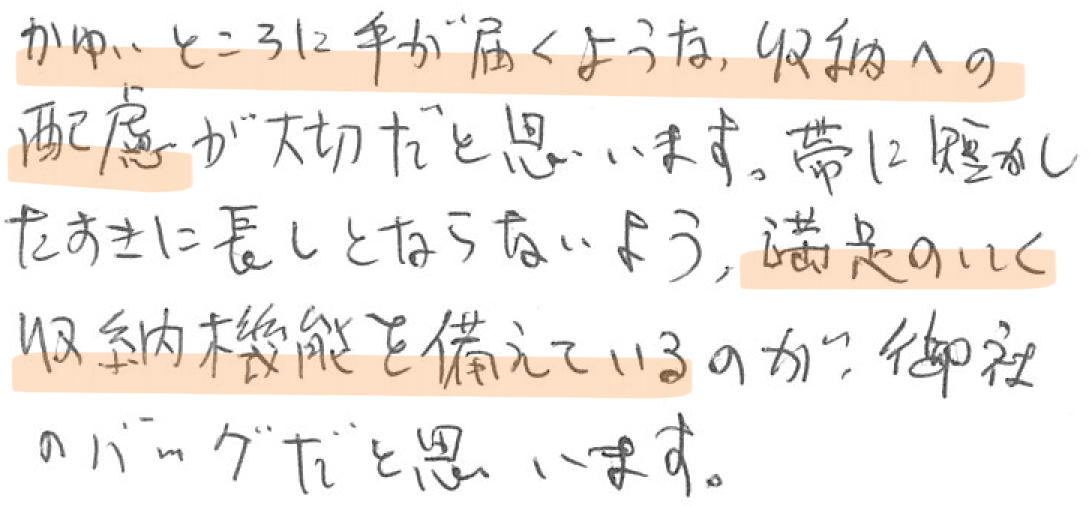 かゆいところに手が届くような、収納への
配慮が大切だと思います。帯に短かし
たすきに長しとならないよう、満足のいく
収納機能を備えているのが、御社
のバッグだと思います。